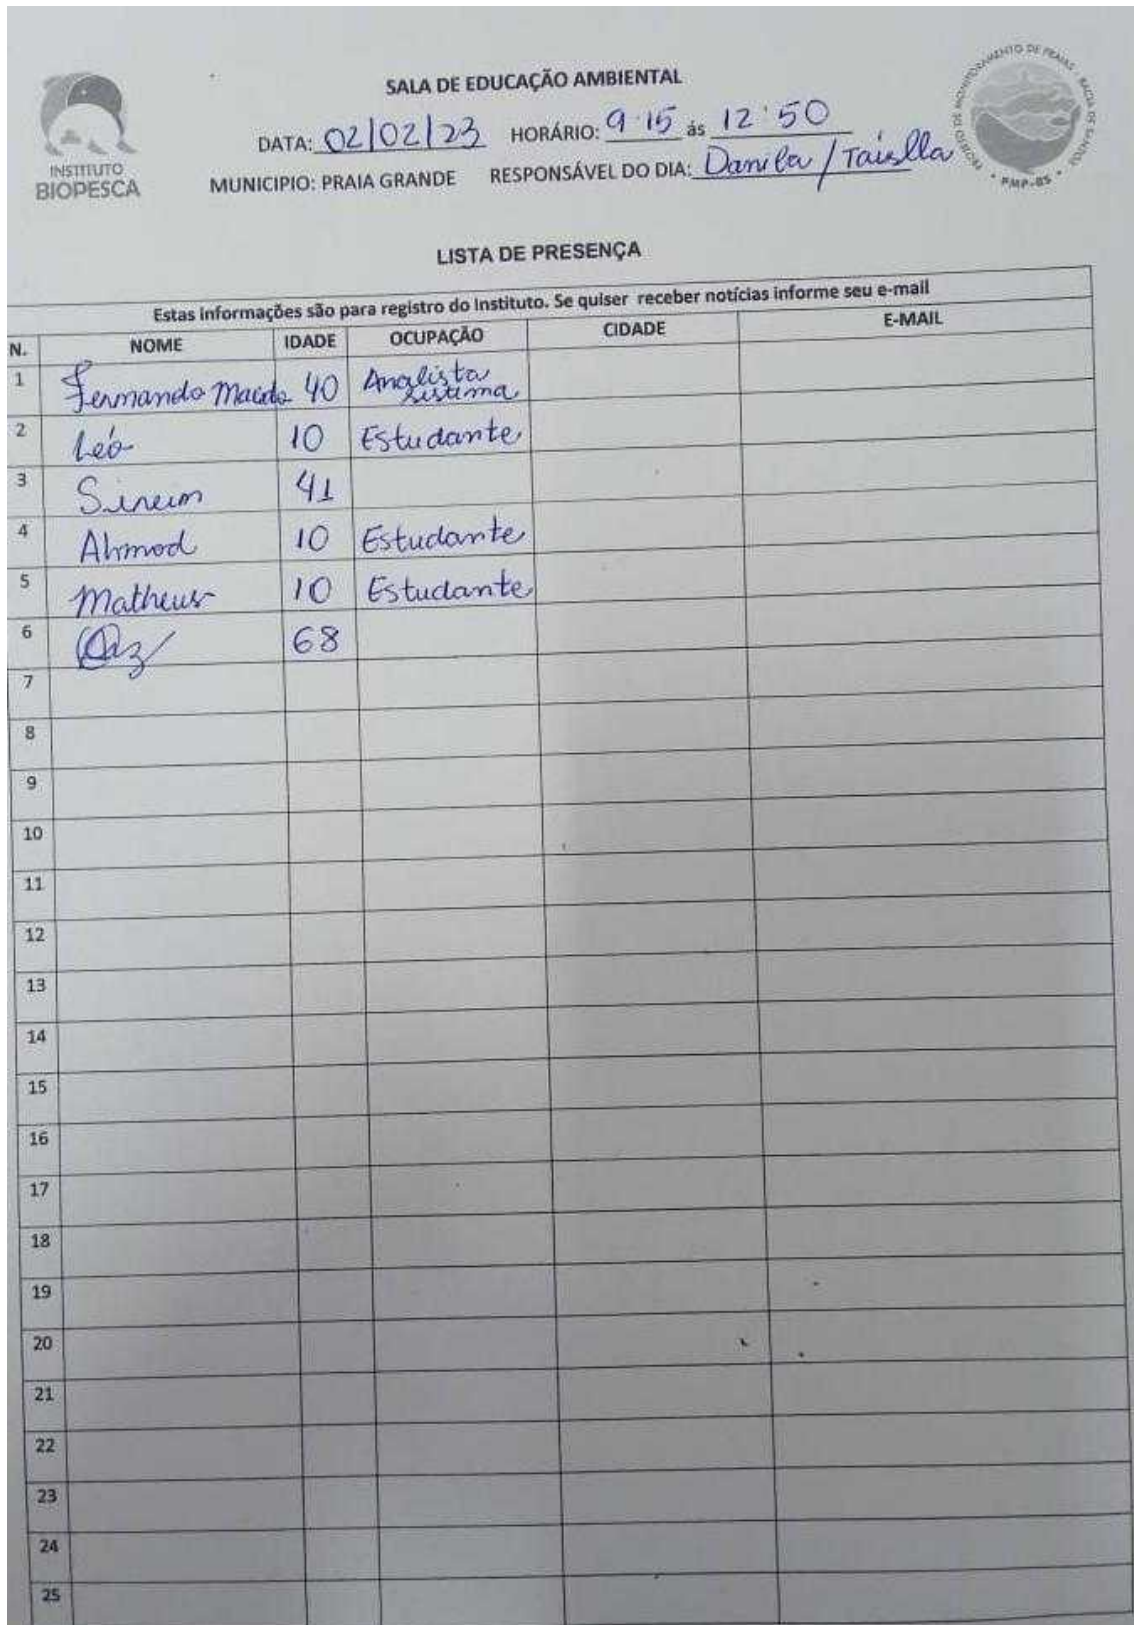 SALA DE EDUCAÇÃO AMBIENTAL
DATA: 02/02/23 HORÁRIO: 9:15 ás 12:50
MUNICIPIO: PRAIA GRANDE RESPONSÁVEL DO DIA: Danila / Taislla
INSTITUTO
BIOPESCA
PROJETO DE MONITORAMENTO DE PRAIAS - BACIA DE SANTOS
• PMP-BS •
LISTA DE PRESENÇA
Estas informações são para registro do Instituto. Se quiser receber notícias informe seu e-mail
N. NOME IDADE OCUPAÇÃO CIDADE E-MAIL
1 Fernando 40 Analista sistema
2 Léo 10 Estudante
3 41
4 Ahmad 10 Estudante
5 Matheus 10 Estudante
6 68
7
8
9
10
11
12
13
14
15
16
17
18
19
20
21
22
23
24
25